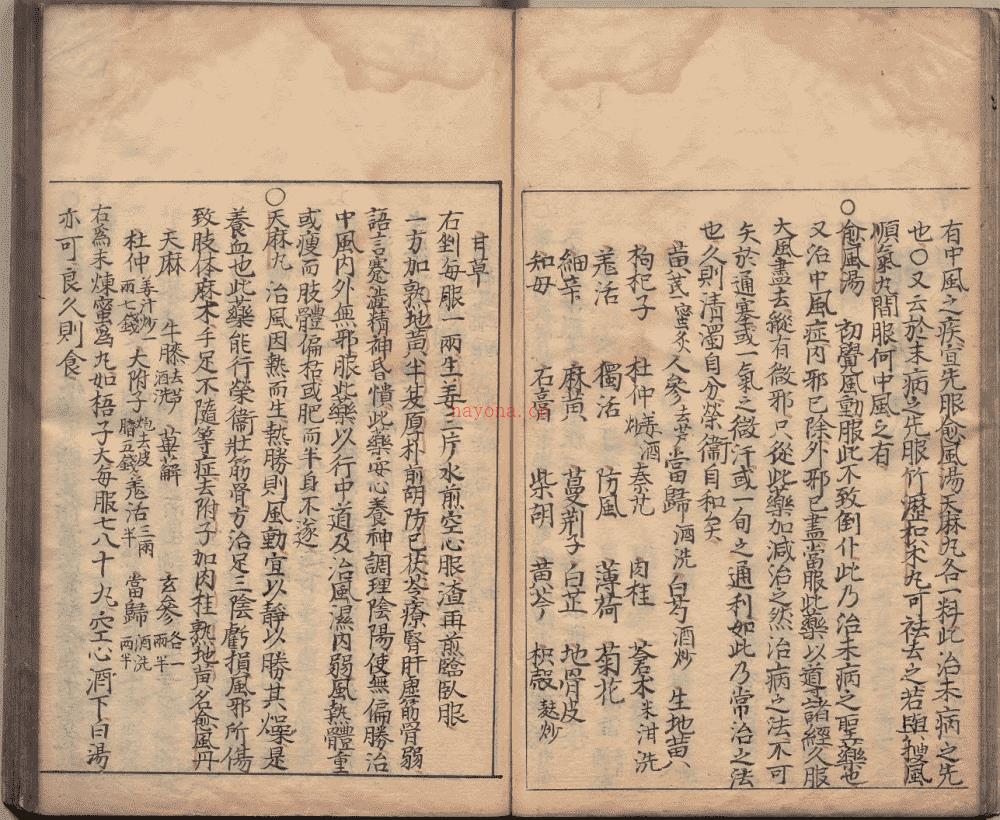 有中風之疾宜先服愈風湯天麻丸各一料此治未病之先
也○又云於未病之先服竹瀝枳朮丸可祛去之若與搜風
順氣丸間服何中風之有
○愈風湯 初覺風動服此不致倒仆此乃治未病之聖藥也
又治中風症内邪已除外邪已盡當服此藥以道諸經久服
大風盡去縱有微邪只從此藥加减治之然治病之法不可
失於通塞或一氣之微汗或一旬之通利如此乃常治之法
也久則清濁自分榮衞自和矣
黄芪蜜炙 人參去芦 當歸酒洗 白芍酒炒 生地黄
枸杞子 杜仲姜酒炒 秦艽 肉桂 蒼朮米泔洗
羌活 獨活 防風 薄荷 菊花
細辛 麻黄 蔓荆子 白芷 地骨皮
知母 石膏 柴胡 黄芩 枳殼麸炒
甘草
右剉每服一兩生姜三片水煎空心服渣再煎臨臥服
一方加熟地黄半夏厚朴前胡防己茯苓療腎肝虚筋骨弱
語言蹇澁精神昏憒此藥安心養神調理陰陽使無偏勝治
中風内外無邪服此藥以行中道及治風濕内弱風熱體重
或瘦而肢體偏枯或肥而半身不遂
○天麻丸 治風因熱而生熱勝則風動宜以靜以勝其燥是
養血也此藥能行榮衞壯筋骨方治足三陰虧損風邪所傷
致肢体麻木手足不隨等症去附子加肉桂熟地黄名愈風丹
天麻 牛膝去芦酒洗 萆解 玄參各一兩半
杜仲姜汁炒一兩七錢 大附子炮去皮臍五錢 羌活三兩半 當歸酒洗兩半
右爲末煉蜜爲丸如梧子大每服七八十丸空心酒下白湯
亦可良久則食
hayona.cn